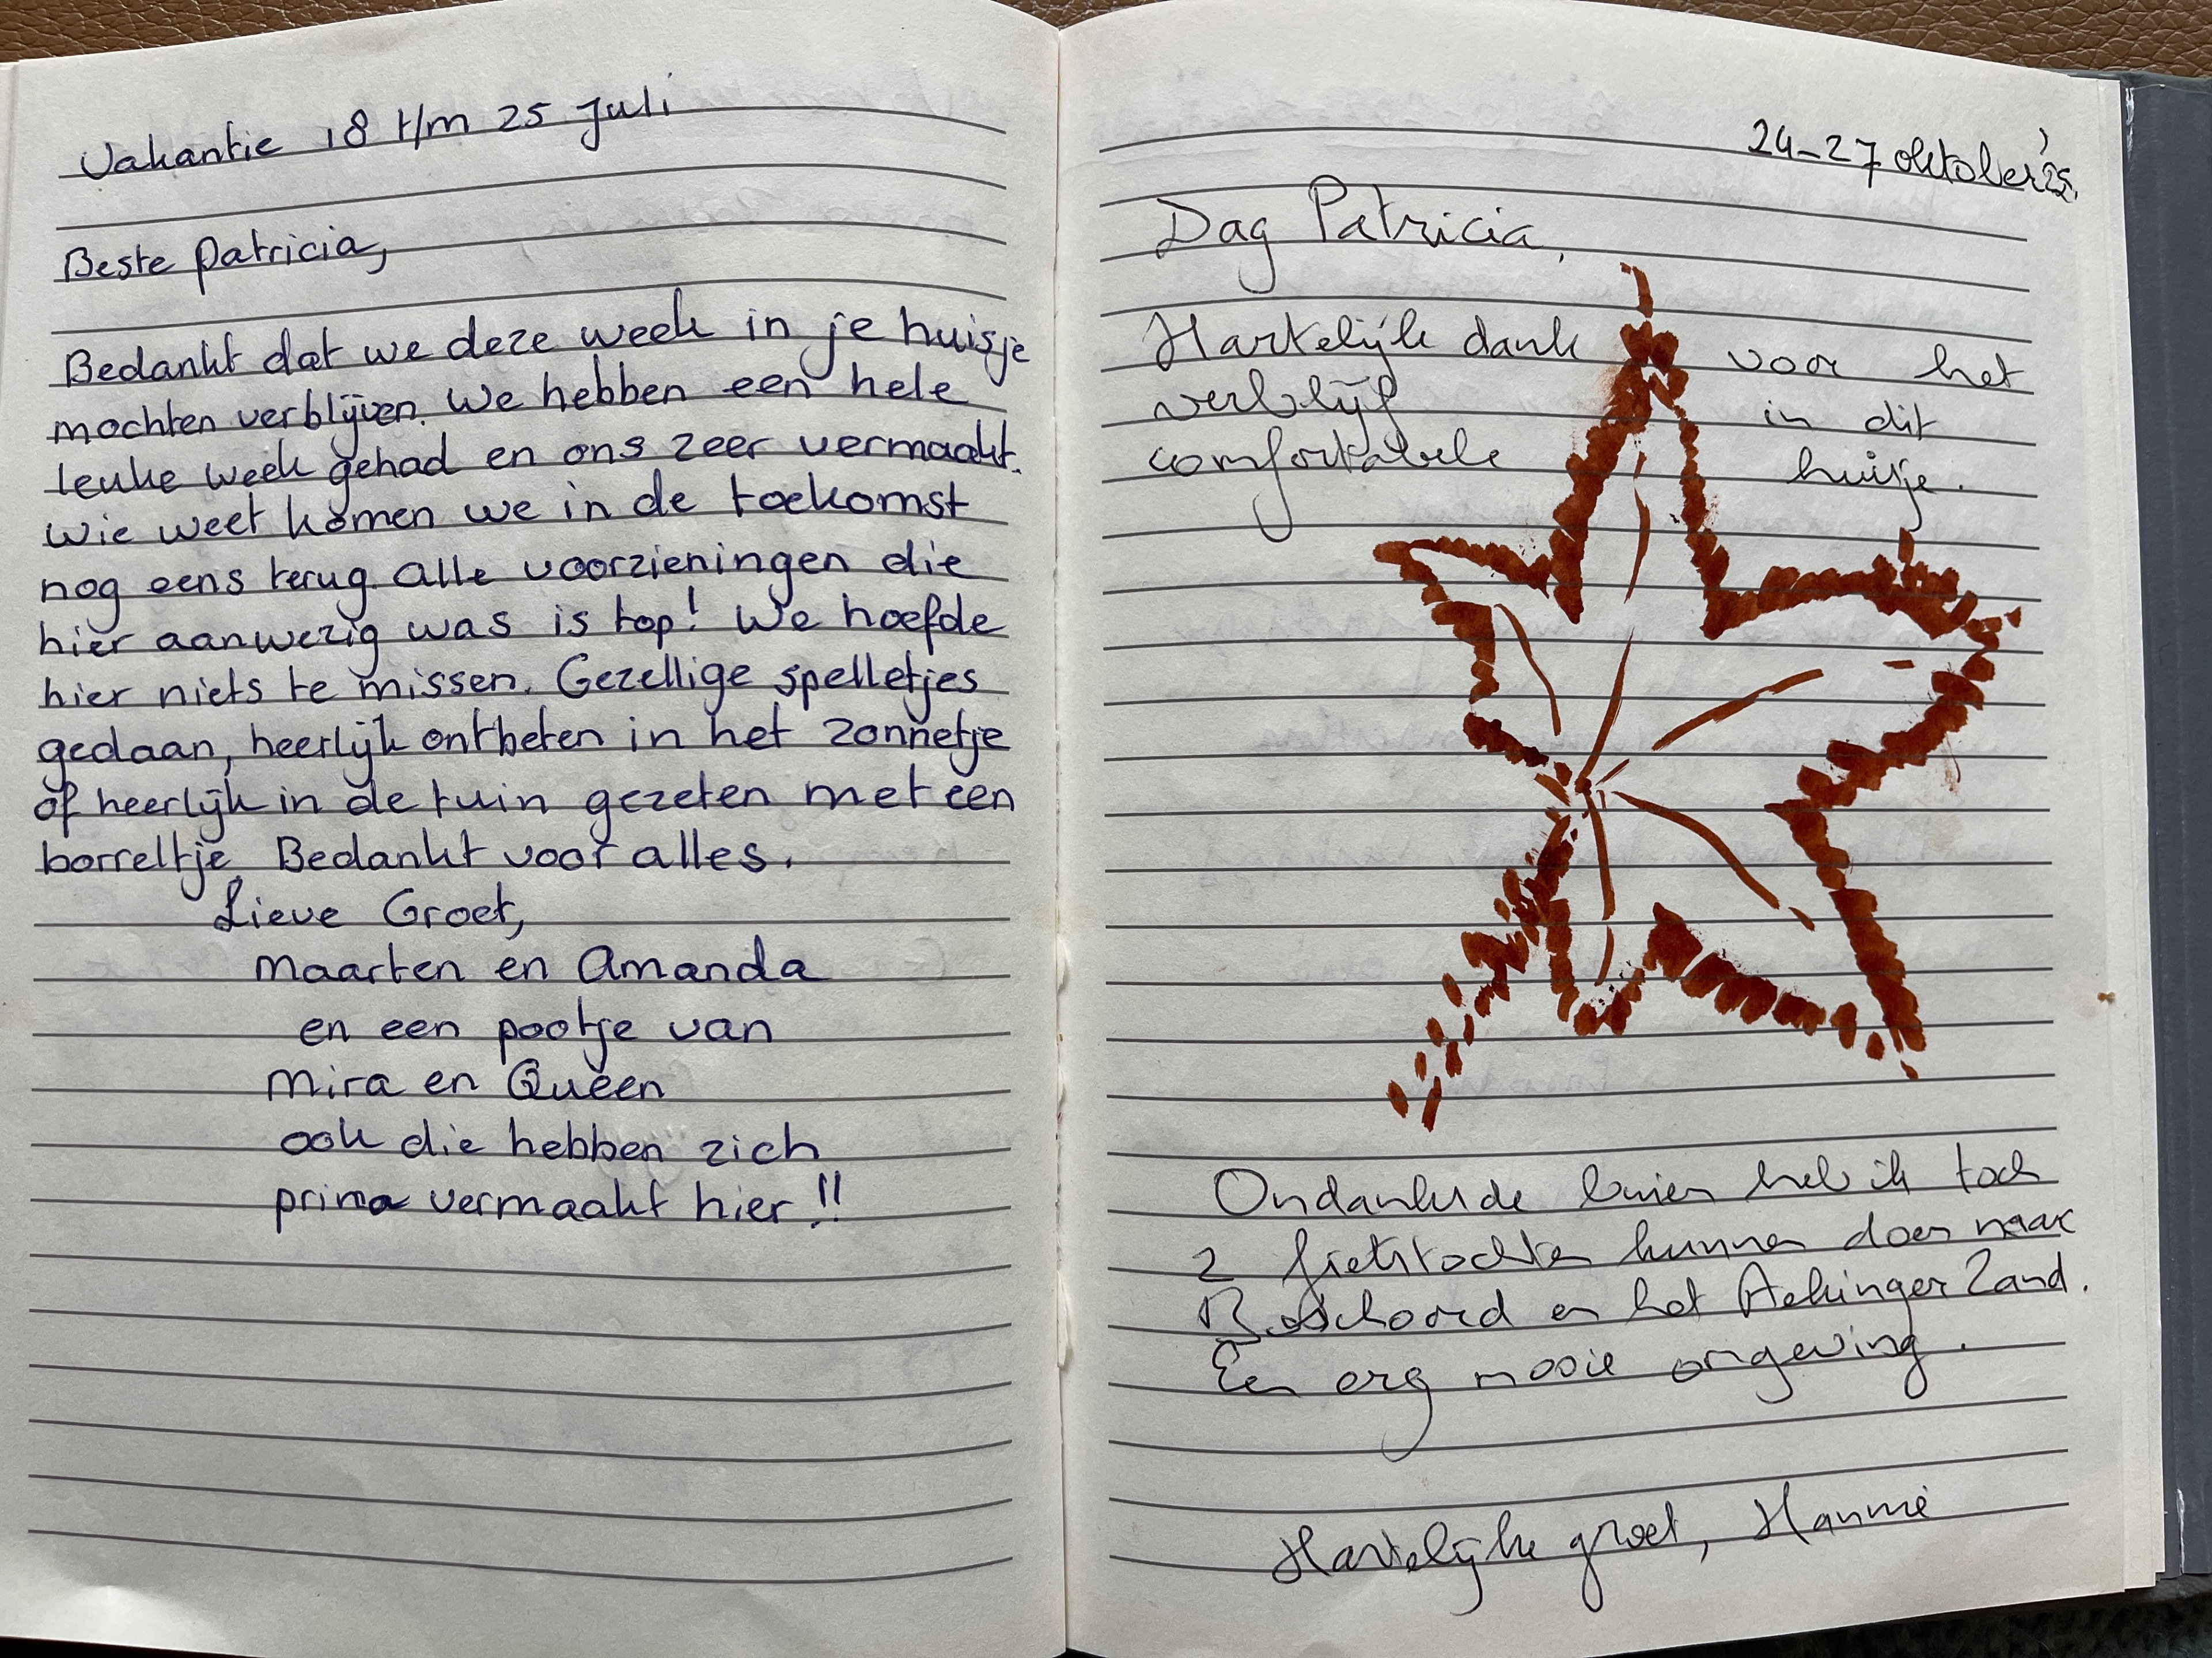 Vakantie 18 t/m 25 Juli
Beste Patricia,
Bedankt dat we deze week in je huisje
mochten verblijven. We hebben een hele
leuke week gehad en ons zeer vermaakt.
Wie weet komen we in de toekomst
nog eens terug. Alle voorzieningen die
hier aanwezig was is top! We hoefde
hier niets te missen. Gezellige spelletjes
gedaan, heerlijk ontbeten in het zonnetje
of heerlijk in de tuin gezeten met een
borreltje. Bedankt voor alles.
Lieve Groet,
Maarten en Amanda
en een pootje van
Mira en Queen
ook die hebben zich
prima vermaakt hier!!
24-27 oktober '25.
Dag Patricia,
Hartelijk dank voor het
verblijf in dit
comfortabele huisje.
Ondanks de buien heb ik toch
2 fietstochten kunnen doen naar
en het Aekinger Zand.
Een erg mooie omgeving.
Hartelijke groet, Hannie